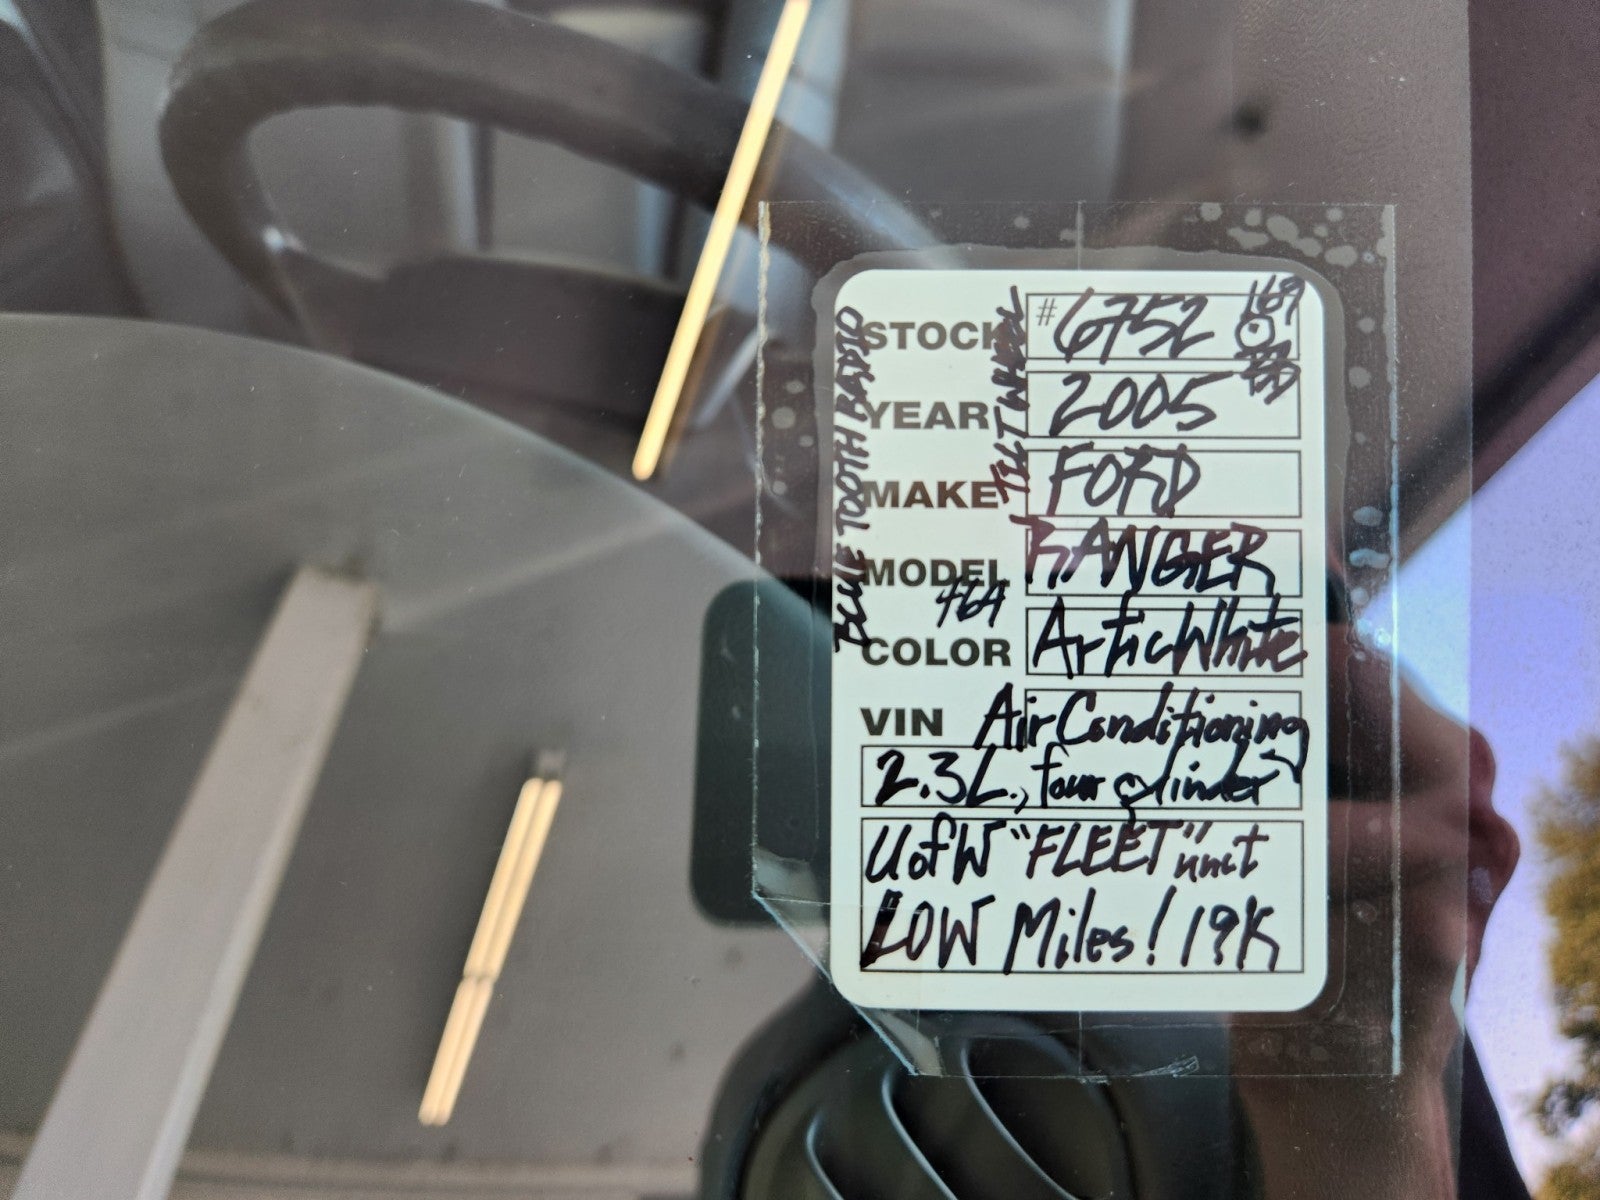 STOCK # 6752 169
YEAR 2005
MAKE FORD
MODEL RANGER
COLOR ArticWhite
VIN Air Conditioning
2.3L., four cylinder
UofW "FLEET" unit
LOW Miles! 19K
BLUE TOOTH RADIO
TILT WHEEL